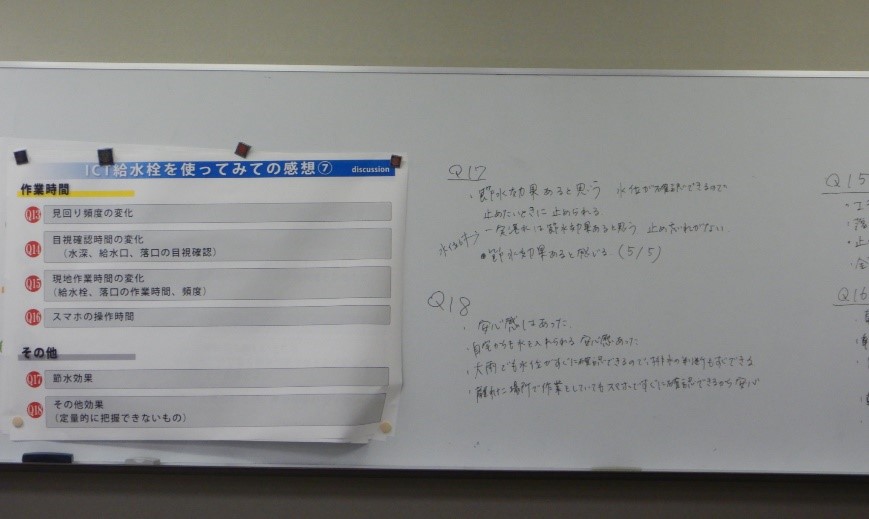 ICT給水栓を使ってみての感想⑦
discussion
作業時間
Q13 見回り頻度の変化
Q14 目視確認時間の変化
（水深、給水口、落口の目視確認）
Q15 現地作業時間の変化
（給水栓、落口の作業時間、頻度）
Q16 スマホの操作時間
その他
Q17 節水効果
Q18 その他効果
（定量的に把握できないもの）
Q17
・節水効果あると思う 水位が確認できるので
止めたいときに止められる
一定湛水は節水効果あると思う 止め忘れがない.
節水効果あると感じる (5/5)
Q18
・安心感はあった.
・自宅からも水を入れられる 安心感あった
・大雨でも水位がすぐに確認できるので、排水の判断もすぐできる
・離れた場所で作業をしていてもスマホですぐに確認できるから安心
Q15
Q16